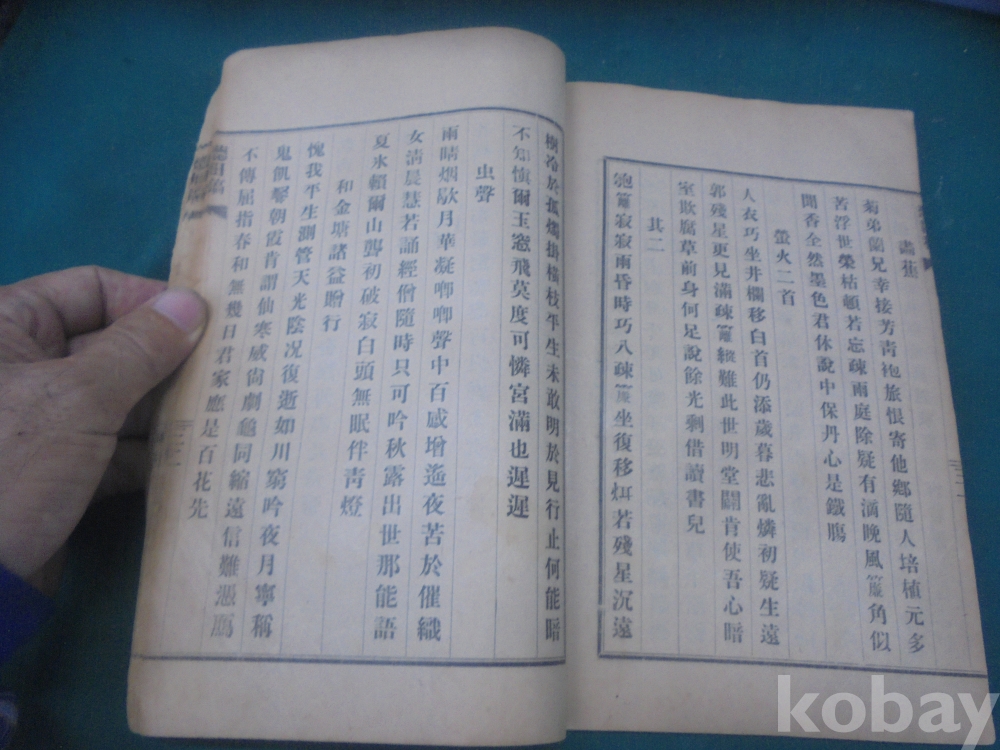 畵蕉
菊弟蘭兄幸接芳靑袍旅恨寄他鄕隨人培植元多
苦浮世榮枯頓若忘疎雨庭除疑有滴晩風簾角似
聞香全然墨色君休說中保丹心是鐵膓
螢火二首
人衣巧坐井欄移白首仍添歲暮悲亂燐初疑生遠
郭殘星更見滿疎籬縱難此世明堂闢肯使吾心暗
室欺腐草前身何足說餘光剩借讀書兒
其二
匏籬寂寂雨昏時巧入疎簾坐復移炯若殘星沉遠
樹冷於孤燭掛橫枝平生未敢明於見行止何能暗
不知愼爾玉窓飛莫度可憐宮滿也遲遲
虫聲
雨晴烟歇月華凝喞喞聲中百感增遙夜苦於催織
女淸晨慧若誦經僧隨時只可吟秋露出世那能語
夏氷賴爾山聾初破寂白頭無眠伴靑燈
和金塘諸益贈行
愧我平生測管天光陰况復逝如川窮吟夜月寧稱
鬼飢聲朝霞肯謂仙寒威尙劇龜同縮遠信難憑鴈
不傳屈指春和無幾日君家應是百花先
kobay